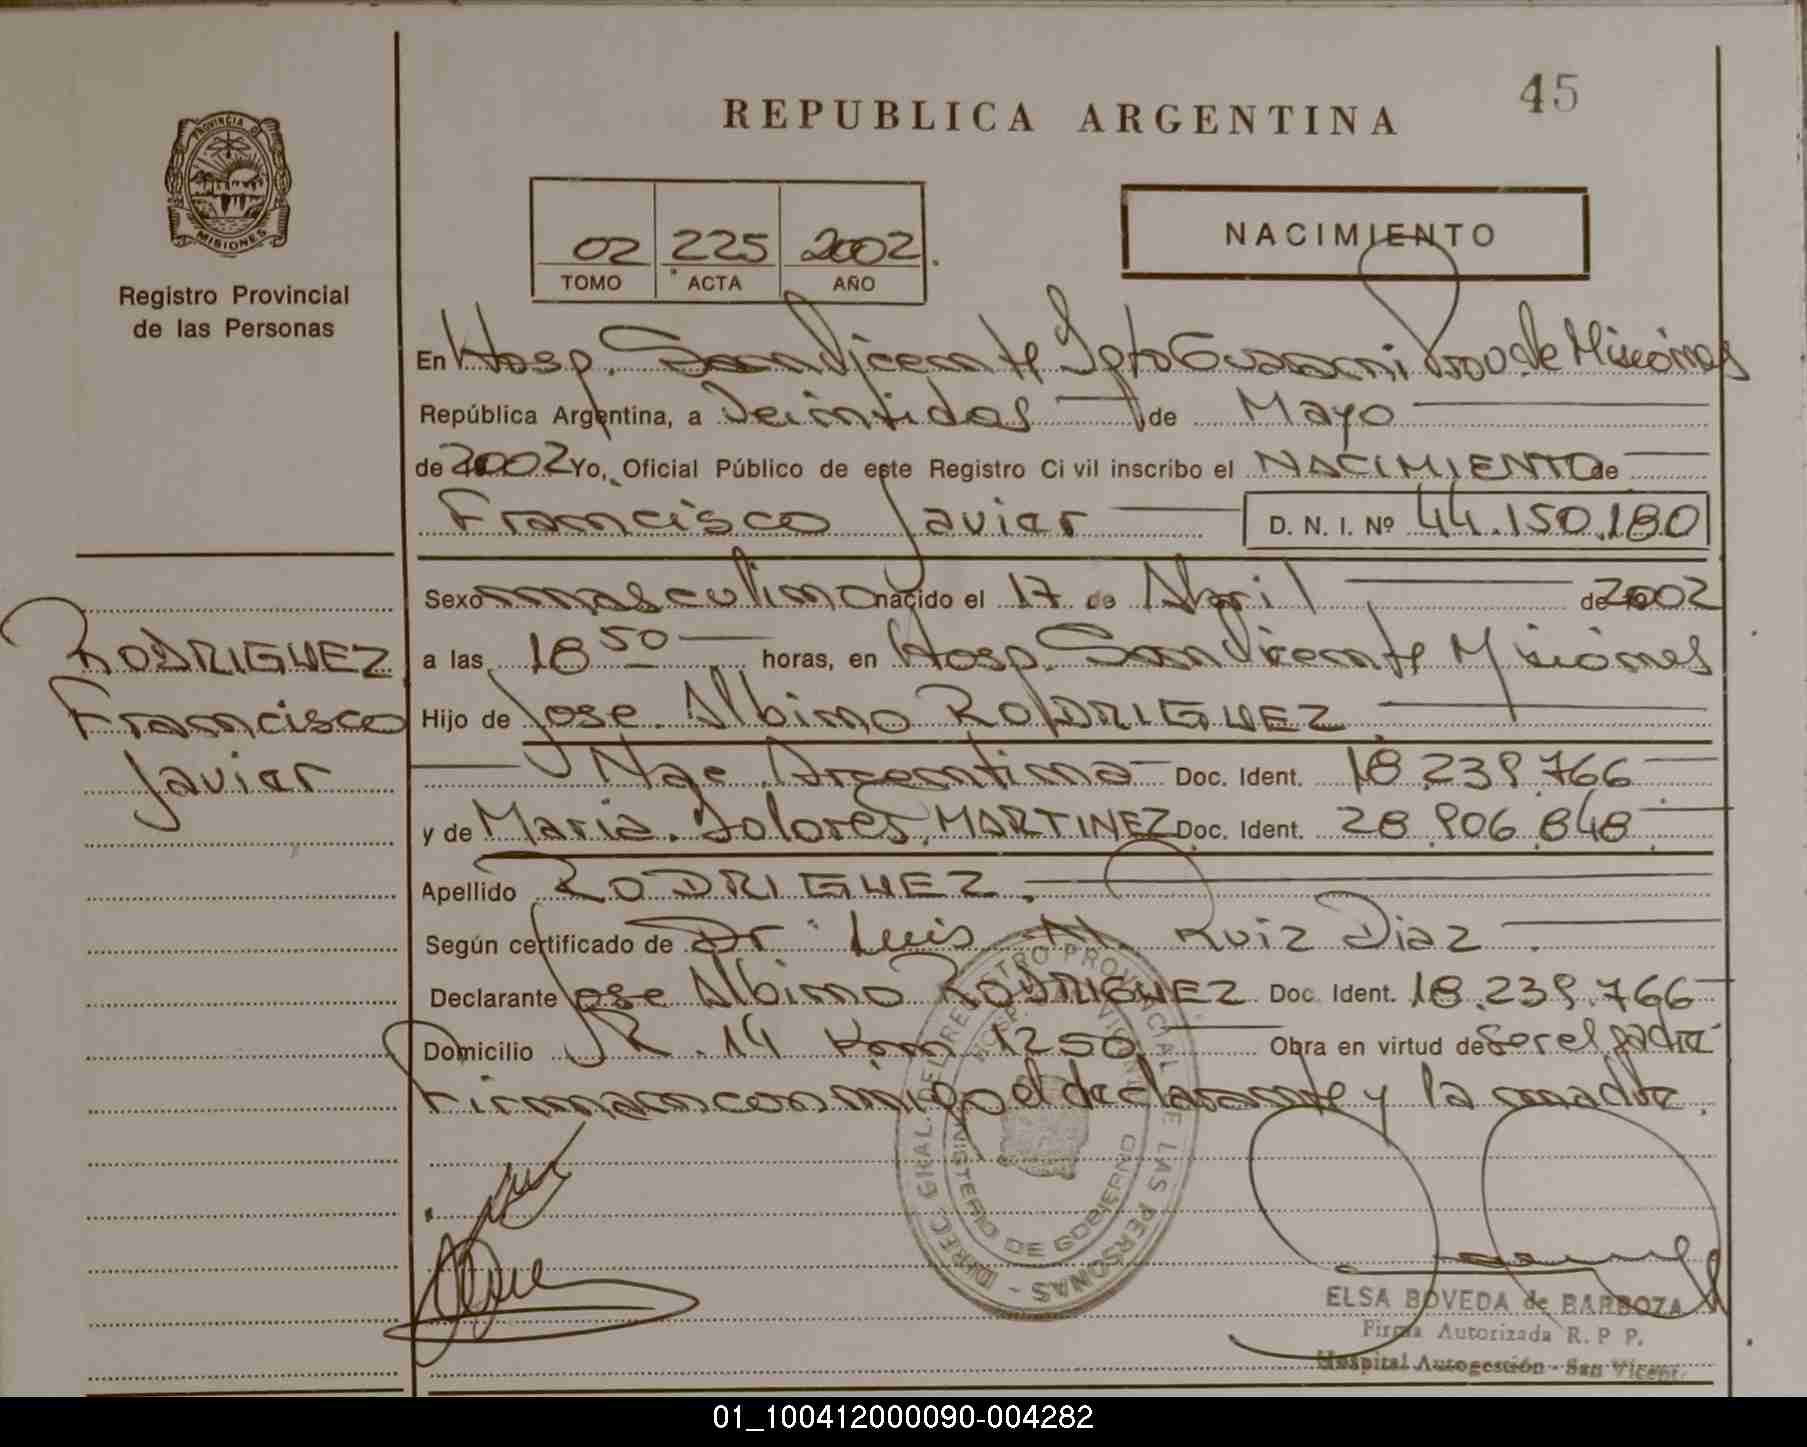 45
REPUBLICA ARGENTINA
PROVINCIA DE
MISIONES
Registro Provincial
de las Personas
02 225 2002
TOMO ACTA AÑO
NACIMIENTO
En Hosp. San Vicente Dpto Guarani Prov de Misiones
República Argentina, a Veintidos de Mayo
de 2002 Yo, Oficial Público de este Registro Civil inscribo el NACIMIENTO de
Francisco Javier D. N. I. Nº 44.150.180
Sexo masculino nacido el 17 de Abril de 2002
a las 18 50 horas, en Hosp. San Vicente Misiones
Hijo de Jose Albino RODRIGUEZ
Nac. Argentina Doc. Ident. 18.239.766
y de Maria Dolores MARTINEZ Doc. Ident. 28.906.848
Apellido RODRIGUEZ
Según certificado de Dr. Luis A. Ruiz Diaz
Declarante Jose Albino RODRIGUEZ Doc. Ident. 18.239.766
Domicilio R. 14 Km 1250 Obra en virtud de Ser el padre
Firman conmigo el declarante y la madre.
RODRIGUEZ
Francisco
Javier
DIREC. GRAL. DEL REGISTRO PROVINCIAL DE LAS PERSONAS -
MINISTERIO DE GOBIERNO
ELSA BOVEDA de BARBOZA
Firma Autorizada R. P P.
Hospital Autogestión - San Vicente
01_100412000090-004282